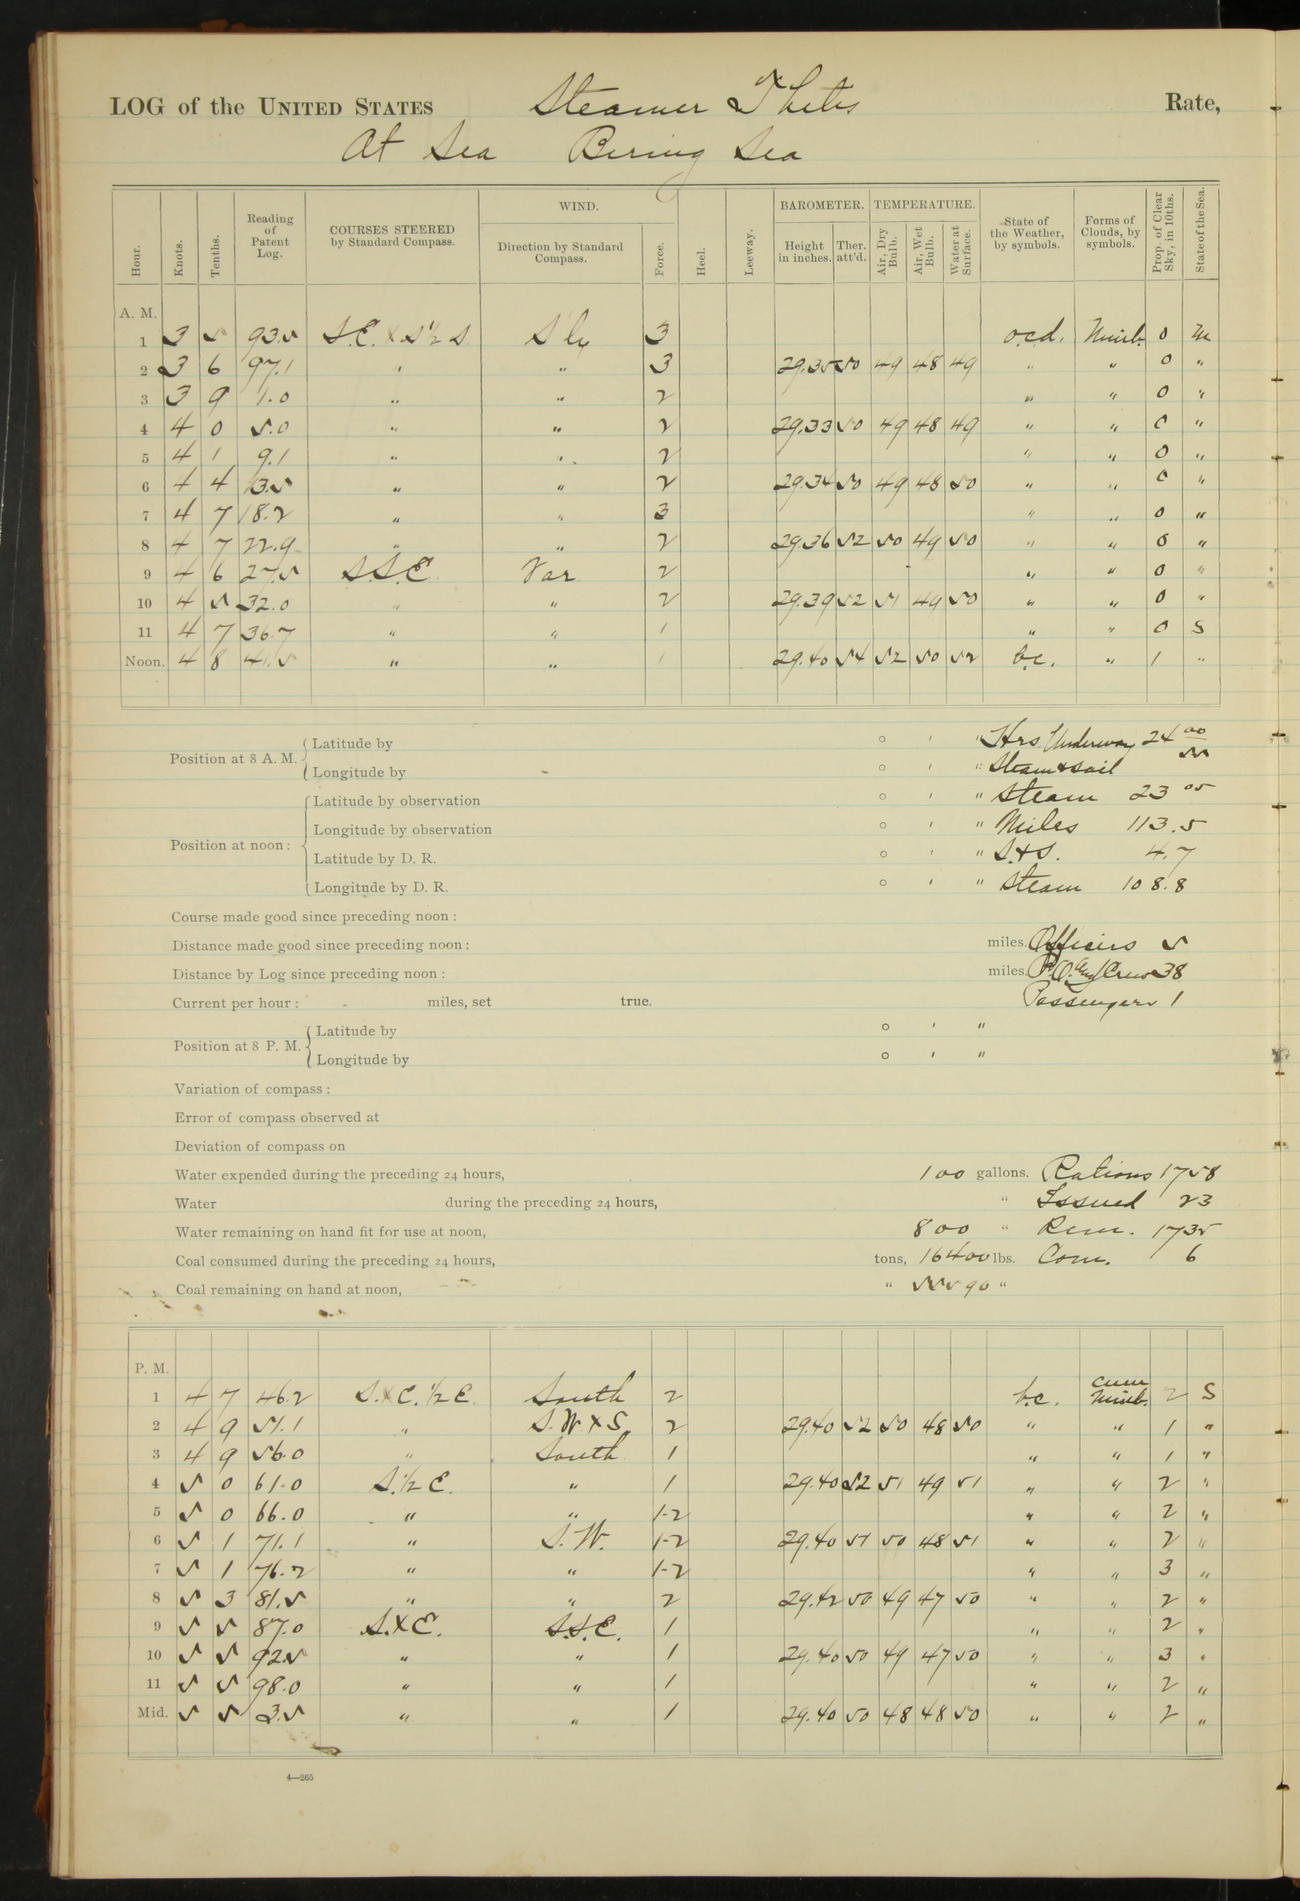 LOG of the UNITED STATES Steamer Thetis Rate,
At Sea Bering Sea
Hour. Knots. Tenths. Reading of Patent Log. COURSES STEERED by Standard Compass. WIND. Direction by Standard Compass. Force. Heel. Leeway. BAROMETER. Height in inches. Ther. att'd. TEMPERATURE. Air, Dry Bulb. Air, Wet Bulb. Water at Surface. State of the Weather, by symbols. Forms of Clouds, by symbols. Prop. of Clear Sky, in 10ths. State of the Sea.
A. M.
1 3 5 93.5 S.E. x S. 1/2 S. S'ly 3 o.c.d. Nimb. 0 M
2 3 6 97.1 " " 3 29.35 50 49 48 49 " " 0 "
3 3 9 1.0 " " 2 " " 0 "
4 4 0 5.0 " " 2 29.33 50 49 48 49 " " 0 "
5 4 1 9.1 " " 2 " " 0 "
6 4 4 13.5 " " 2 29.34 50 49 48 50 " " 0 "
7 4 7 18.2 " " 3 " " 0 "
8 4 7 22.9 " " 2 29.36 52 50 49 50 " " 0 "
9 4 6 27.5 S.S.E. Var 2 " " 0 "
10 4 5 32.0 " " 2 29.39 52 51 49 50 " " 0 "
11 4 7 36.7 " " 1 " " 0 S
Noon. 4 8 41.5 " " 1 29.40 54 52 50 52 b.c. " 1 "
Position at 8 A. M. Latitude by ° ' " Hrs. Underway 24 00
Longitude by ° ' " Steam & Sail 55
Position at noon: Latitude by observation ° ' " Steam 23 05
Longitude by observation ° ' " Miles 113.5
Latitude by D. R. ° ' " S. & S. 4.7
Longitude by D. R. ° ' " Steam 108.8
Course made good since preceding noon:
Distance made good since preceding noon: miles. Officers 5
Distance by Log since preceding noon: miles. P.O. and Crew 38
Current per hour: miles, set true. Passengers 1
Position at 8 P. M. Latitude by ° ' "
Longitude by ° ' "
Variation of compass:
Error of compass observed at
Deviation of compass on
Water expended during the preceding 24 hours, 100 gallons. Rations 1758
Water during the preceding 24 hours, " Issued 23
Water remaining on hand fit for use at noon, 800 " Rem. 1735
Coal consumed during the preceding 24 hours, tons, 16400 lbs. Com. 6
Coal remaining on hand at noon, " "
P. M.
1 4 7 46.2 S. x E. 1/2 E. South 2 b.c. Cum Nimb. 2 S
2 4 9 51.1 " S.W. x S. 2 29.40 52 50 48 50 " " 1 "
3 4 9 56.0 " South 1 " " 1 "
4 5 0 61.0 S. 1/2 E. " 1 29.40 52 51 49 51 " " 2 "
5 5 0 66.0 " " 1-2 " " 2 "
6 5 1 71.1 " S.W. 1-2 29.40 51 50 48 51 " " 2 "
7 5 1 76.2 " " 1-2 " " 3 "
8 5 3 81.5 " " 2 29.42 50 49 47 50 " " 2 "
9 5 5 87.0 S. x E. S.S.E. 1 " " 2 "
10 5 5 92.5 " " 1 29.40 50 49 47 50 " " 3 "
11 5 5 98.0 " " 1 " " 2 "
Mid. 5 5 3.5 " " 1 29.40 50 48 48 50 " " 2 "
4—265